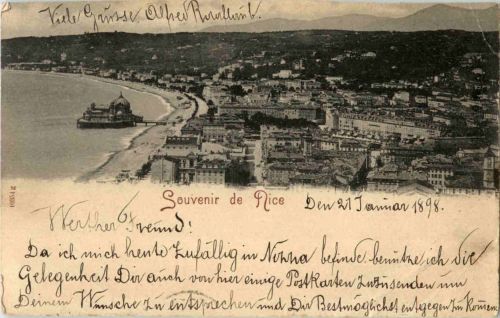 Viele Grüsse Alfred
Souvenir de Nice
Den 21 Januar 1898.
Werther Freund!
Da ich mich heute Zufällig in Nizza befinde benütze ich die
Gelegenheit Dir auch von hier einige Postkarten zuzusenden um
Deinem Wunsche zu entsprechen und Dir Bestmöglichst entgegen zu kommen